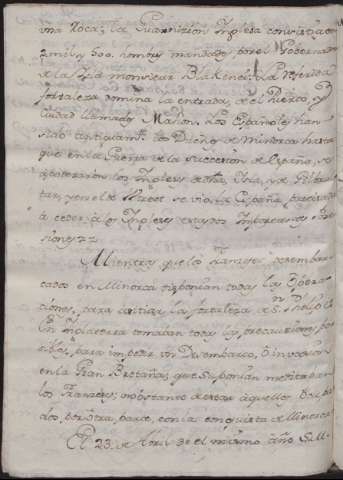 una Roca; la Guarnicion Inglesa consistia en
2 mil y 500. hombres mandados por el Governador
de la Isla monsieur Blakenei. La referida
fortaleza domina la entrada, de el Puerto, y
ciudad llamada Mahon. Los Españoles han
sido antiguam.te los Dueños de Minorca hasta
que en la Guerra de la Succession de España, se
apoderaron los Ingleses de esta Isla, y de Gibral-
tar, y en el de Utrec se vio la España precisada
a ceder, a los Ingleses estas dos Importantes Pose-
siones.
Mientras que los Franceses desembar-
cados en Minorca disponian todas las Opera-
ciones, para continuar la fortaleza de S.n Phelipe
En Inglaterra tomaban todas las precauciones posi-
bles, para impedir un Desembarco, ô invasion
en la Gran Bretaña, que suponian meditaban
los Franceses; no obstante de estar aquellos ocupa-
dos, por otra parte, con la conquista de Minorca.
El 23. de Abril de el mismo año S. M.